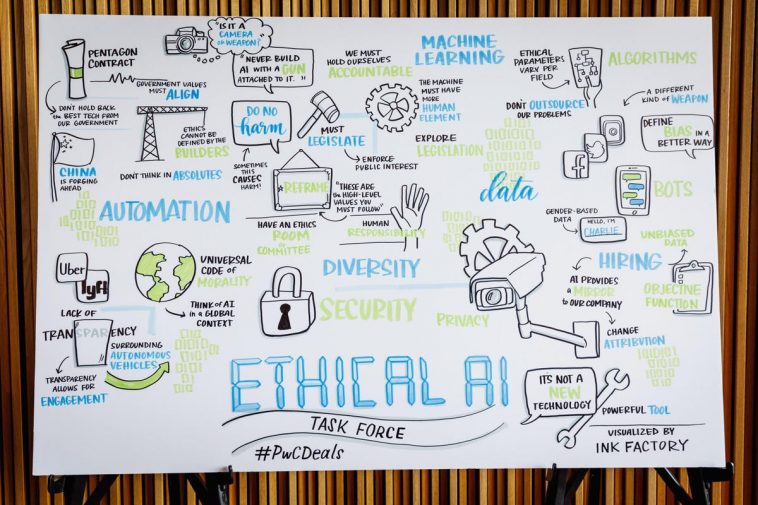 PENTAGON
CONTRACT
GOVERNMENT VALUES
MUST ALIGN
DON'T HOLD BACK
the BEST TECH FROM
OUR GOVERNMENT
CHINA
is FORGING
AHEAD
"IS IT A
CAMERA
OR WEAPON?"
"NEVER BUILD
AI WITH A GUN
ATTACHED TO IT."
ETHICS
CANNOT BE
DEFINED BY the
BUILDERS
DON'T THINK in ABSOLUTES
DO NO
harm
SOMETIMES
THIS CAUSES
HARM!
WE MUST
HOLD OURSELVES
ACCOUNTABLE
MUST
LEGISLATE
ENFORCE
PUBLIC INTEREST
MACHINE
LEARNING
THE MACHINE
MUST HAVE
MORE
HUMAN
ELEMENT
EXPLORE
LEGISLATION
ETHICAL
PARAMETERS
VARY PER
FIELD
ALGORITHMS
DON'T OUTSOURCE
OUR PROBLEMS
A DIFFERENT
KIND of WEAPON
DEFINE
BIAS IN A
BETTER WAY
f
BOTS
data
GENDER-BASED
DATA
HELLO, I'M
CHARLIE.
UNBIASED
DATA
HIRING
OBJECTIVE
FUNCTION
AI PROVIDES
a MIRROR
to OUR COMPANY
CHANGE
ATTRIBUTION
AUTOMATION
REFRAME
"THESE ARE
the HIGH-LEVEL
VALUES YOU
MUST FOLLOW"
HAVE AN ETHICS
ROOM
or
COMMITTEE
HUMAN
RESPONSIBILITY
UNIVERSAL
CODE of
MORALITY
THINK of AI
in a GLOBAL
CONTEXT
DIVERSITY
SECURITY
PRIVACY
Uber
lyft
LACK OF
TRANSPARENCY
SURROUNDING
AUTONOMOUS
VEHICLES
TRANSPARENCY
ALLOWS FOR
ENGAGEMENT
ETHICAL AI
TASK FORCE
#PwCDeals
IT'S NOT A
NEW
TECHNOLOGY
POWERFUL TOOL
VISUALIZED BY
INK FACTORY